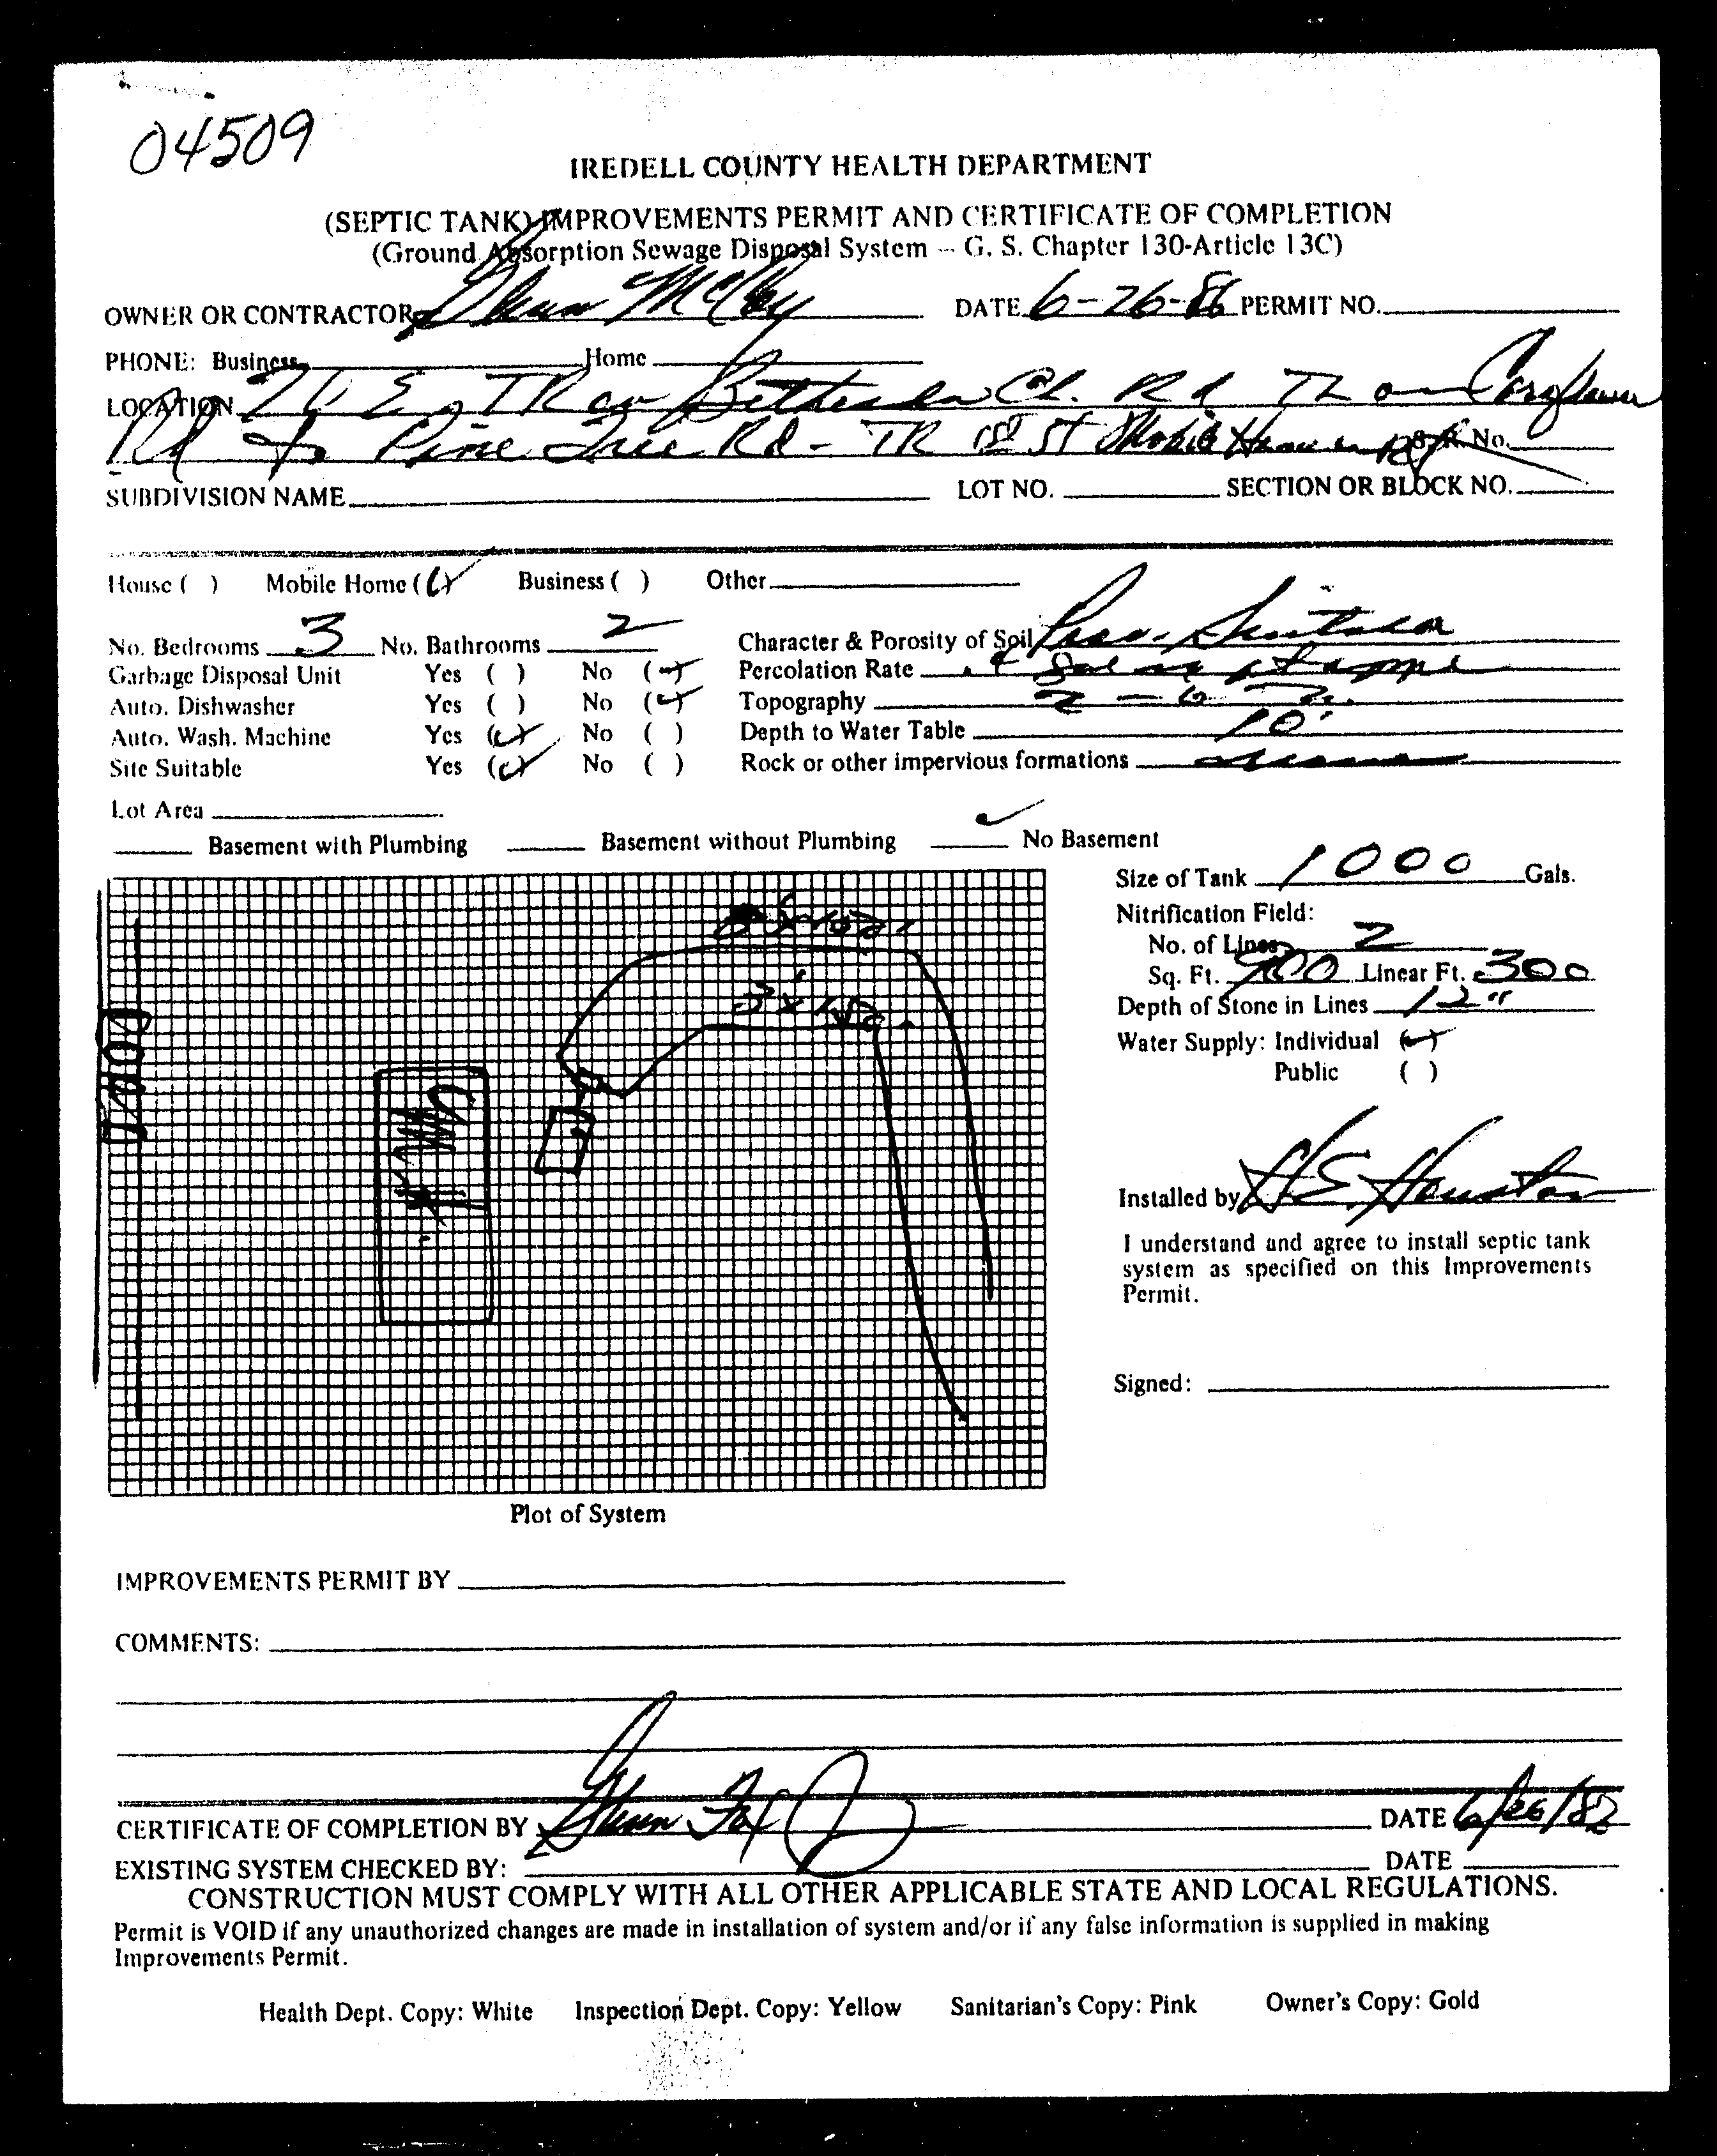 04509
IREDELL COUNTY HEALTH DEPARTMENT
(SEPTIC TANK) IMPROVEMENTS PERMIT AND CERTIFICATE OF COMPLETION
(Ground Absorption Sewage Disposal System -- G. S. Chapter 130-Article 13C)
OWNER OR CONTRACTOR Glenn McCoy DATE 6-26-86 PERMIT NO.
PHONE: Business Home
LOCATION E TR on Bethesda Ch. Rd TL on
Rd to Pine Tree Rd - TR 1st St Mobile Home on S.R. No.
SUBDIVISION NAME LOT NO. SECTION OR BLOCK NO.
House ( ) Mobile Home (✓) Business ( ) Other
No. Bedrooms 3 No. Bathrooms 2 Character & Porosity of Soil Prov. Suitable
Garbage Disposal Unit Yes ( ) No (✓) Percolation Rate
Auto. Dishwasher Yes ( ) No (✓) Topography 2 - 6 %
Auto. Wash. Machine Yes (✓) No ( ) Depth to Water Table 10'
Site Suitable Yes (✓) No ( ) Rock or other impervious formations none
Lot Area
Basement with Plumbing Basement without Plumbing ✓ No Basement
Size of Tank 1000 Gals.
Nitrification Field:
No. of Lines 2
Sq. Ft. 900 Linear Ft. 300
Depth of Stone in Lines 12"
Water Supply: Individual (✓)
Public ( )
3' x 150'
3' x 150'
Road
Installed by H.E. Houston
I understand and agree to install septic tank
system as specified on this Improvements
Permit.
Signed:
Plot of System
IMPROVEMENTS PERMIT BY
COMMENTS:
CERTIFICATE OF COMPLETION BY Glenn Fox DATE 6/26/82
EXISTING SYSTEM CHECKED BY: DATE
CONSTRUCTION MUST COMPLY WITH ALL OTHER APPLICABLE STATE AND LOCAL REGULATIONS.
Permit is VOID if any unauthorized changes are made in installation of system and/or if any false information is supplied in making
Improvements Permit.
Health Dept. Copy: White Inspection Dept. Copy: Yellow Sanitarian's Copy: Pink Owner's Copy: Gold